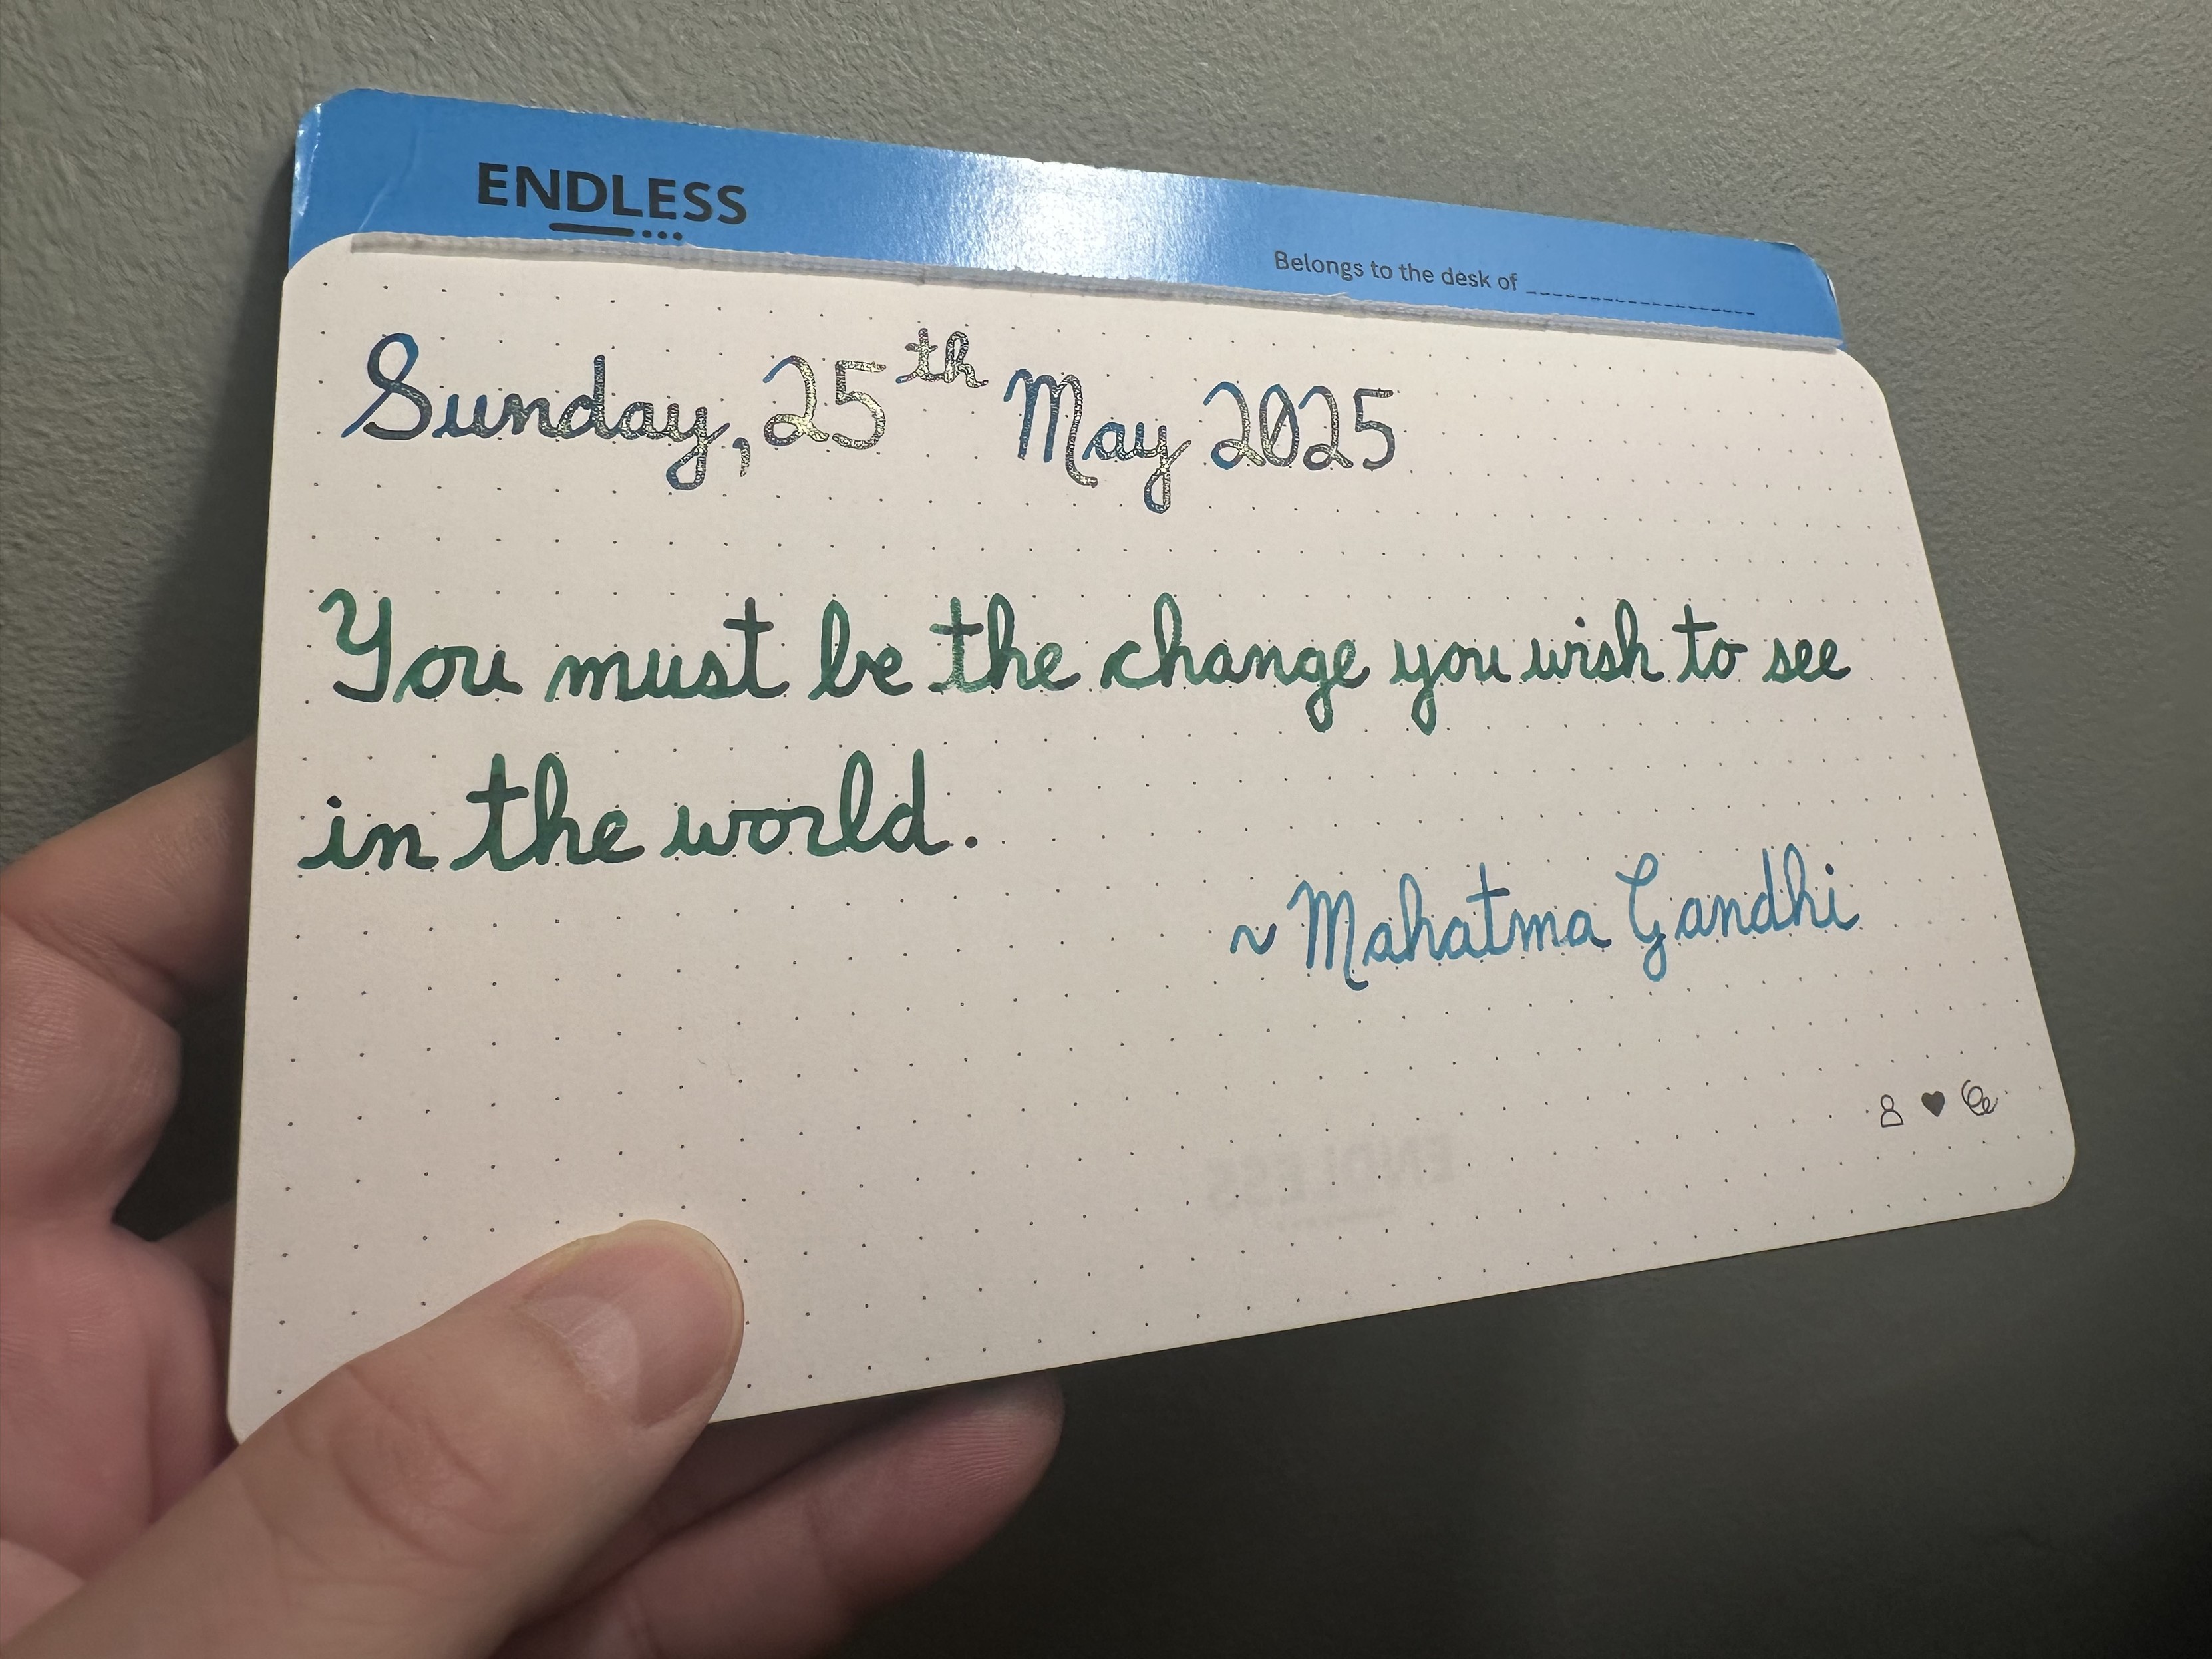 ENDLESS
Belongs to the desk of
Sunday, 25th May 2025
You must be the change you wish to see
in the world.
~ Mahatma Gandhi
ENDLESS